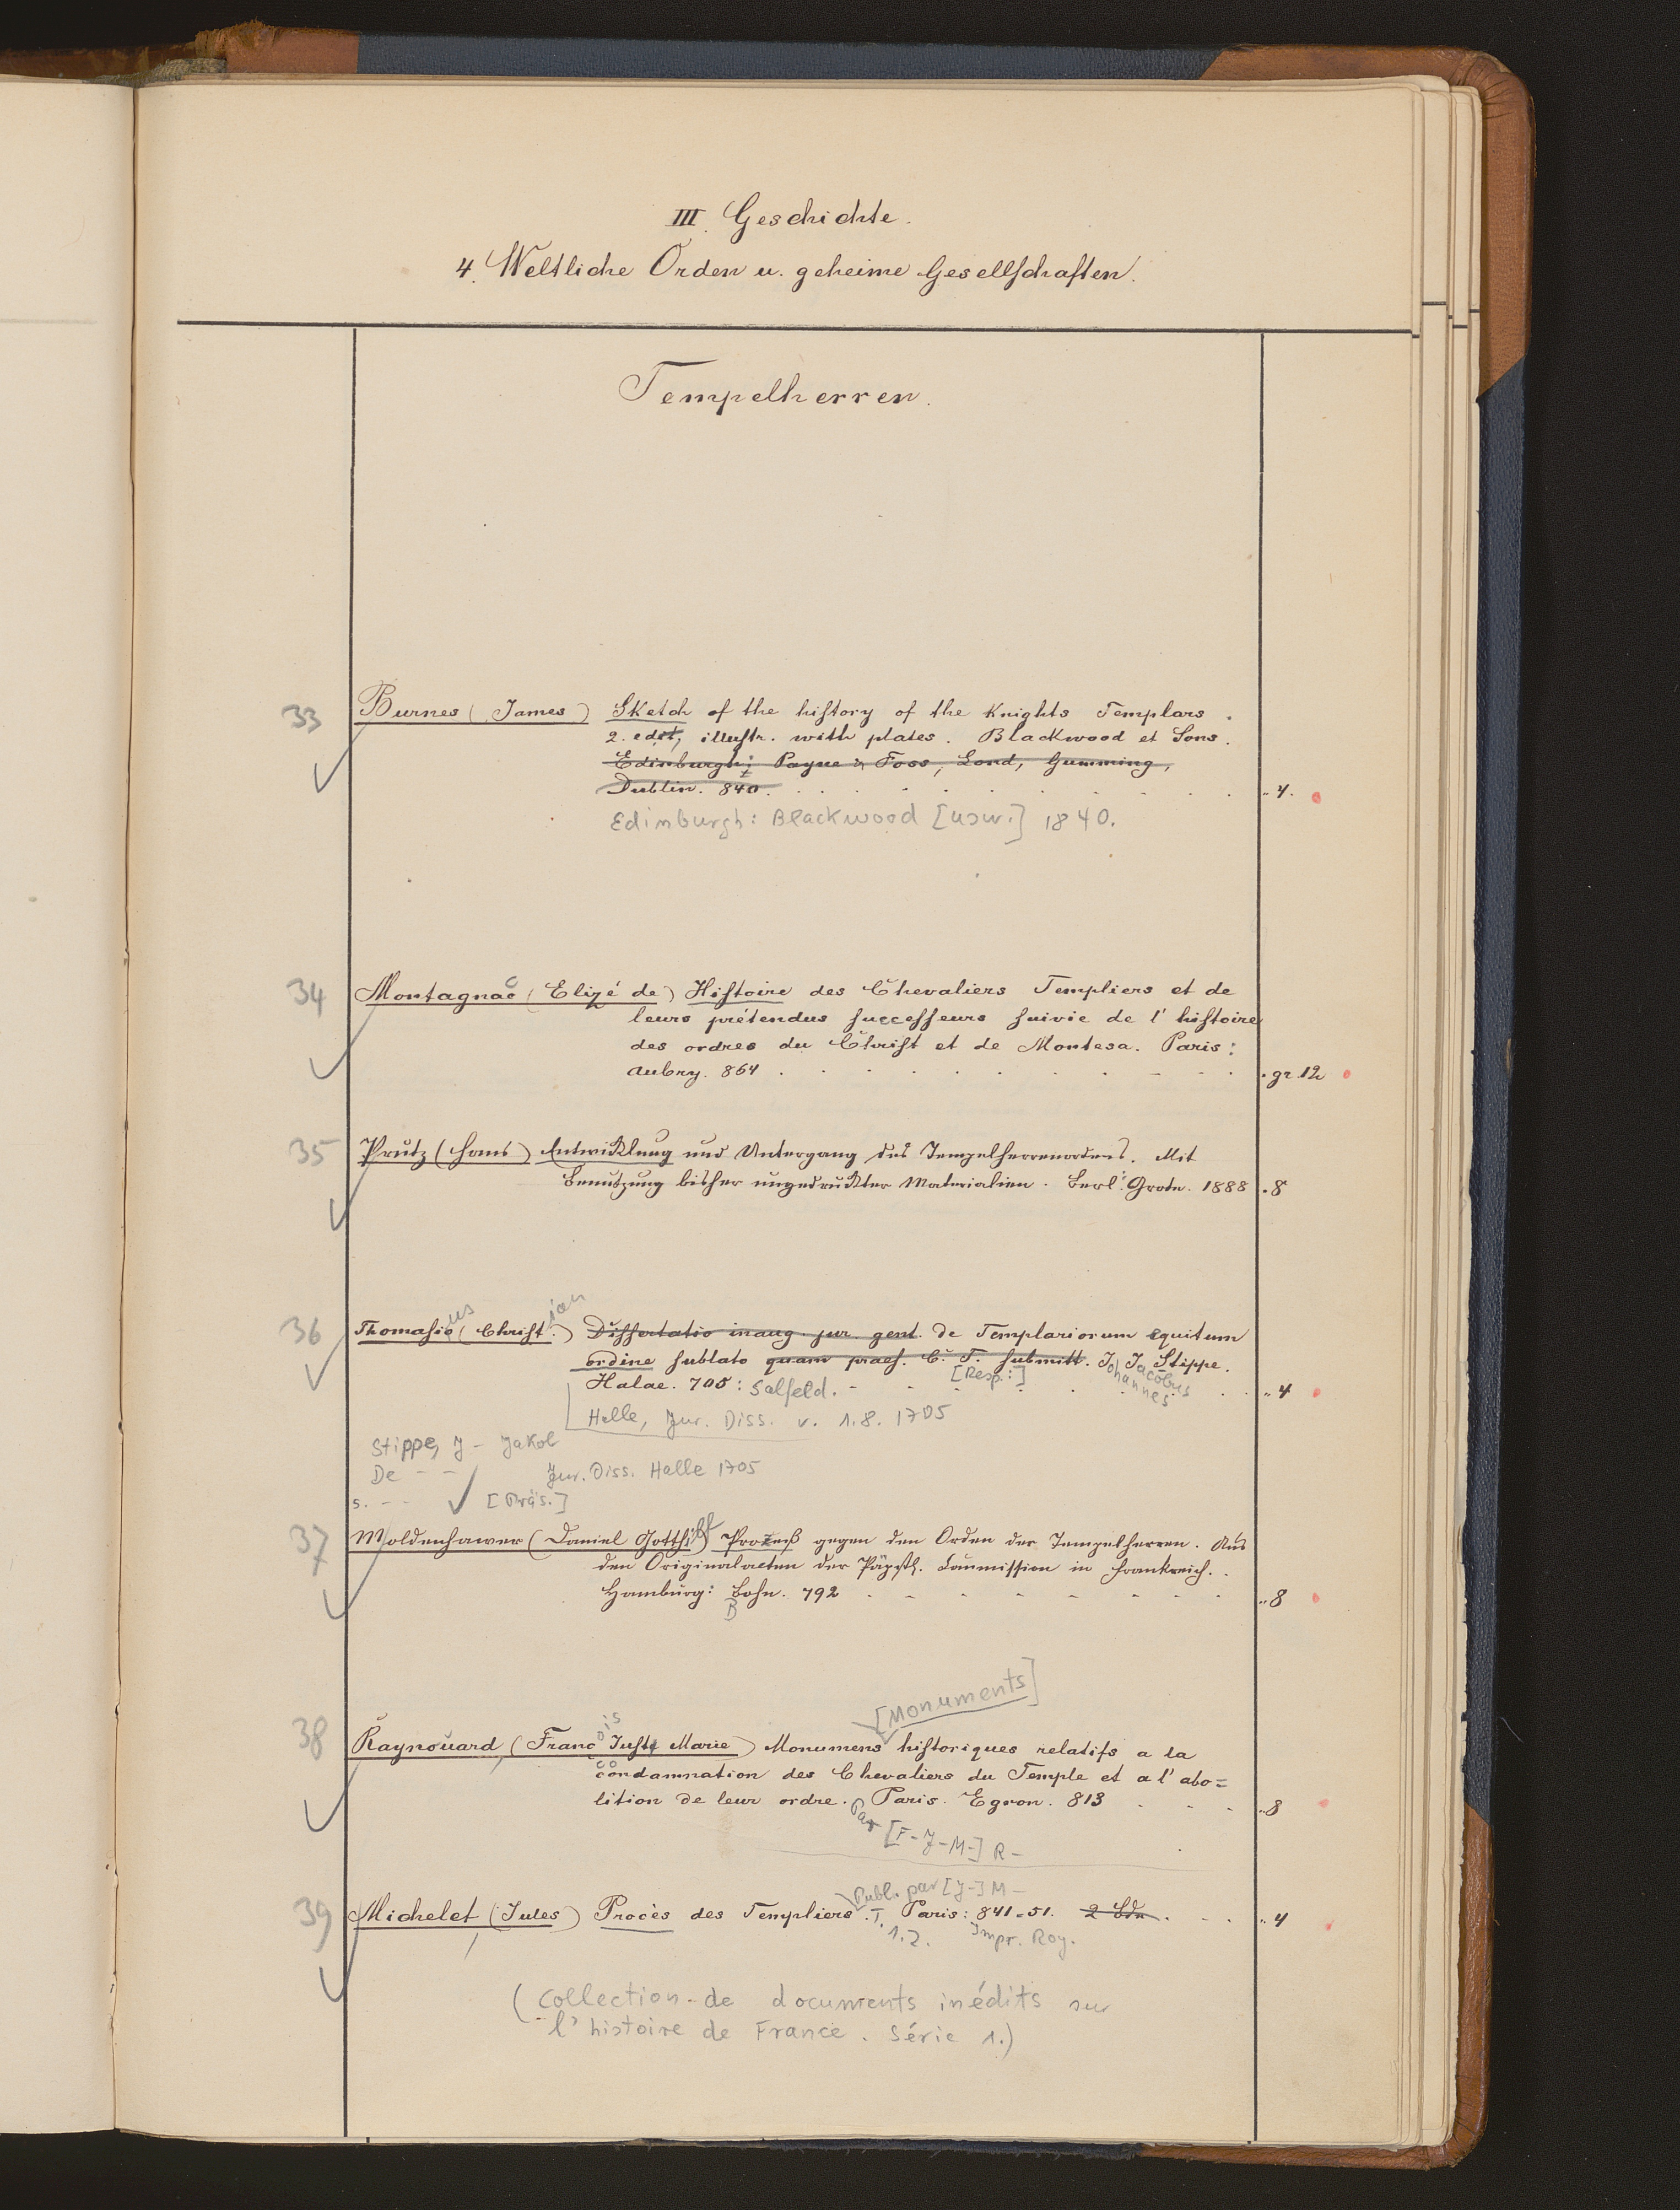 III. Geschichte.
4. Weltliche Orden u. geheime Gesellschaften.
Tempelherren.
33 Burnes (James) Sketch of the history of the Knights Templars.
2. edit, illustr. with plates. Blackwood et Sons.
Edinburgh; Payne & Foss, Lond, Gumming,
Dublin. 840. „ 4.
Edinburgh: Blackwood [usw.] 1840.
34 Montagnac (Elizé de) Histoire des Chevaliers Templiers et de
leurs prétendus successeurs suivie de l' histoire
des ordres du Christ et de Montesa. Paris:
Aubry. 864 . gr. 12
35 Prutz (Hans) Entwicklung und Untergang des Tempelherrenordens. Mit
Benutzung bisher ungedruckter Materialien. Berl: Grote. 1888 . 8
36 Thomasius (Christian) Dissertatio inaug. jur. gent. de Templariorum equitum
ordine sublato quam praes. C. T. submitt. J Jacobus Stippe.
[Resp.:] Johannes
Halae. 705: Salfeld. „ 4
Halle, Jur. Diss. v. 1.8. 1705
Stippe, J- Jakob
De - - Jur. Diss. Halle 1705
s. - - [Präs.]
37 Moldenhawer (Daniel Gotthilf) Prozeß gegen den Orden der Tempelherren. Aus
den Originalacten der Päpstl. Commission in Frankreich.
Hamburg: Bohn. 792 „ 8
B
[Monuments]
38 Raynouard (Francois Juste Marie) Monumens historiques relatifs a la
condamnation des Chevaliers du Temple et a l' abo=
lition de leur ordre. Paris. Egron. 813 „ 8
Par [F-J-M-] R-
Publ. par [J-] M-
39 Michelet (Jules) Procès des Templiers. T. Paris: 841=51. 2 Bde. „ 4
1.2. Impr. Roy.
(Collection de documents inédits sur
l' histoire de France. Série 1.)